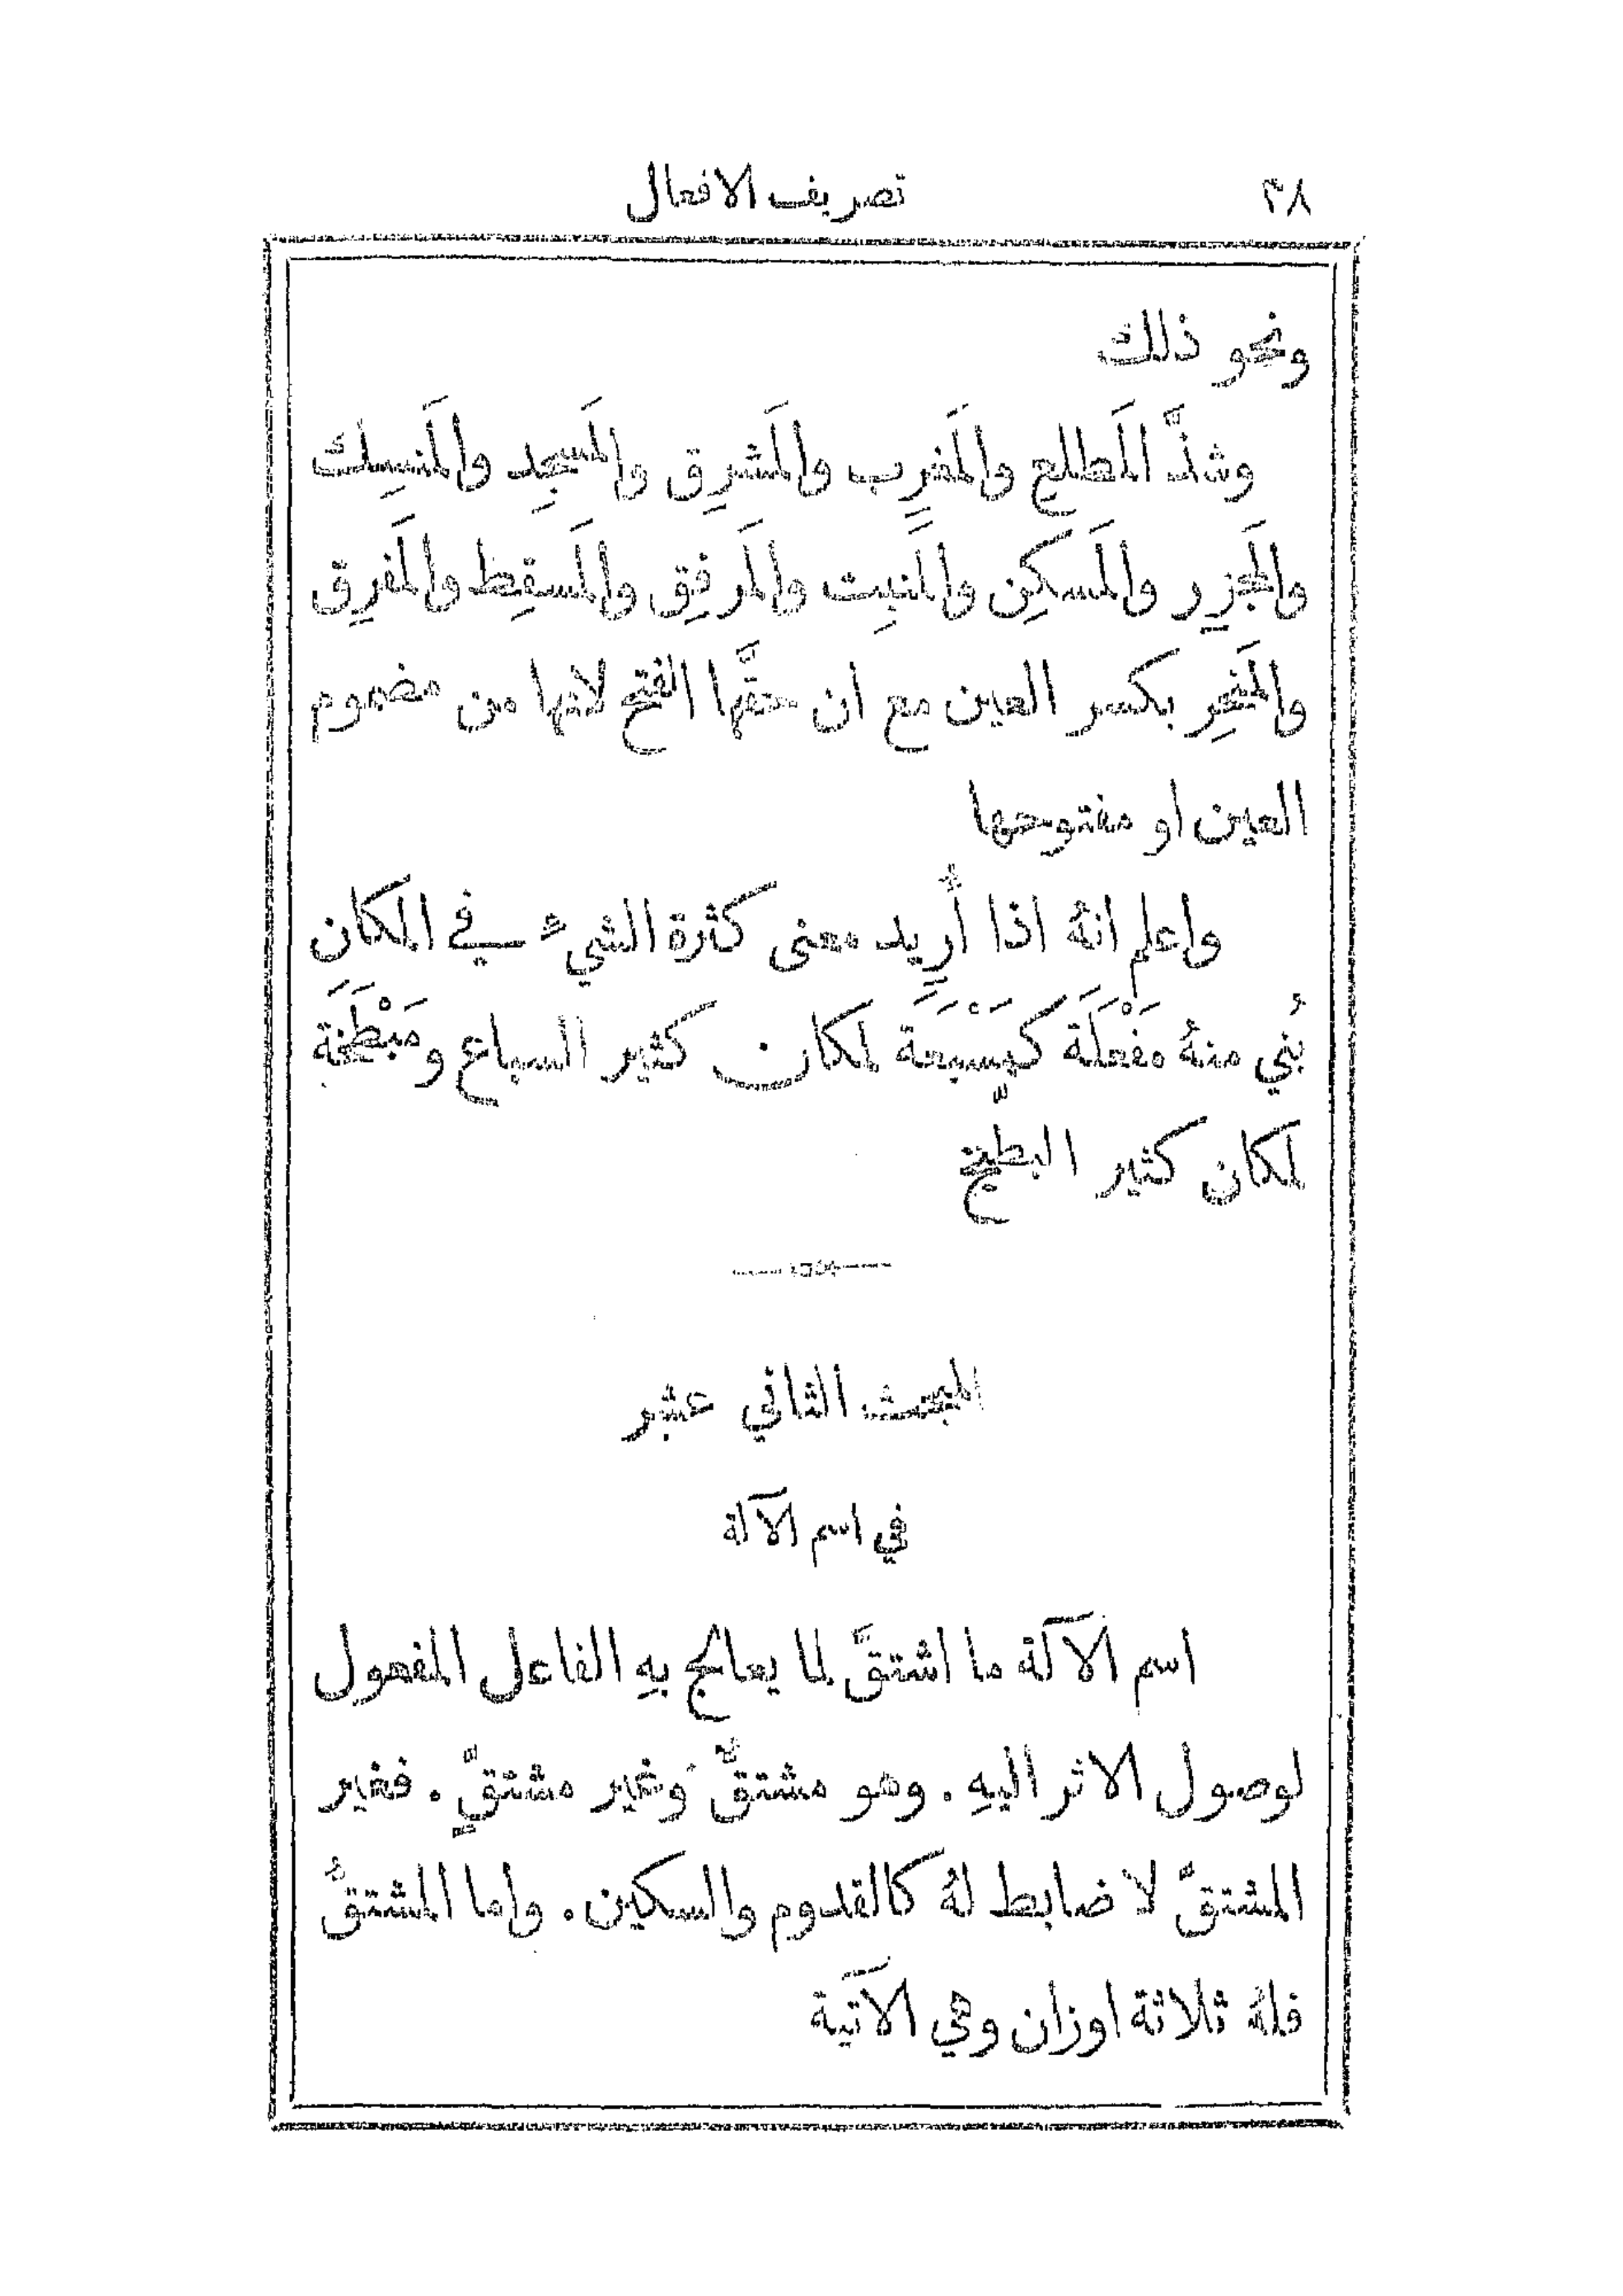 ٣٨ تصريف الافعال
ونحو ذلك
وشذَّ المَطلع والمَغرِب والمَشرِق والمَسجِد والمَنسِك
والمَجزِر والمَسكِن والمَنبِت والمَرفِق والمَسقِط والمَفرِق
والمَنخِر بكسر العين مع ان حقَّها الفتح لانها من مضموم
العين او مفتوحها
واعلم انهُ اذا أُرِيد معنى كثرة الشيء في المكان
بُني منهُ مَفْعَلَة كمَسْبَعَة لمكان كثير السباع ومَبْطَخَة
لمكان كثير البطّيخ
المبحث الثاني عشر
في اسم الآلة
اسم الآلة ما اشتقَّ لما يعالج بهِ الفاعل المفعول
لوصول الاثر اليهِ. وهو مشتقٌّ وغير مشتقٍّ. فغير
المشتقّ لا ضابط لهُ كالقدوم والسكين. واما المشتقُّ
فلهُ ثلاثة اوزان وهي الآتية